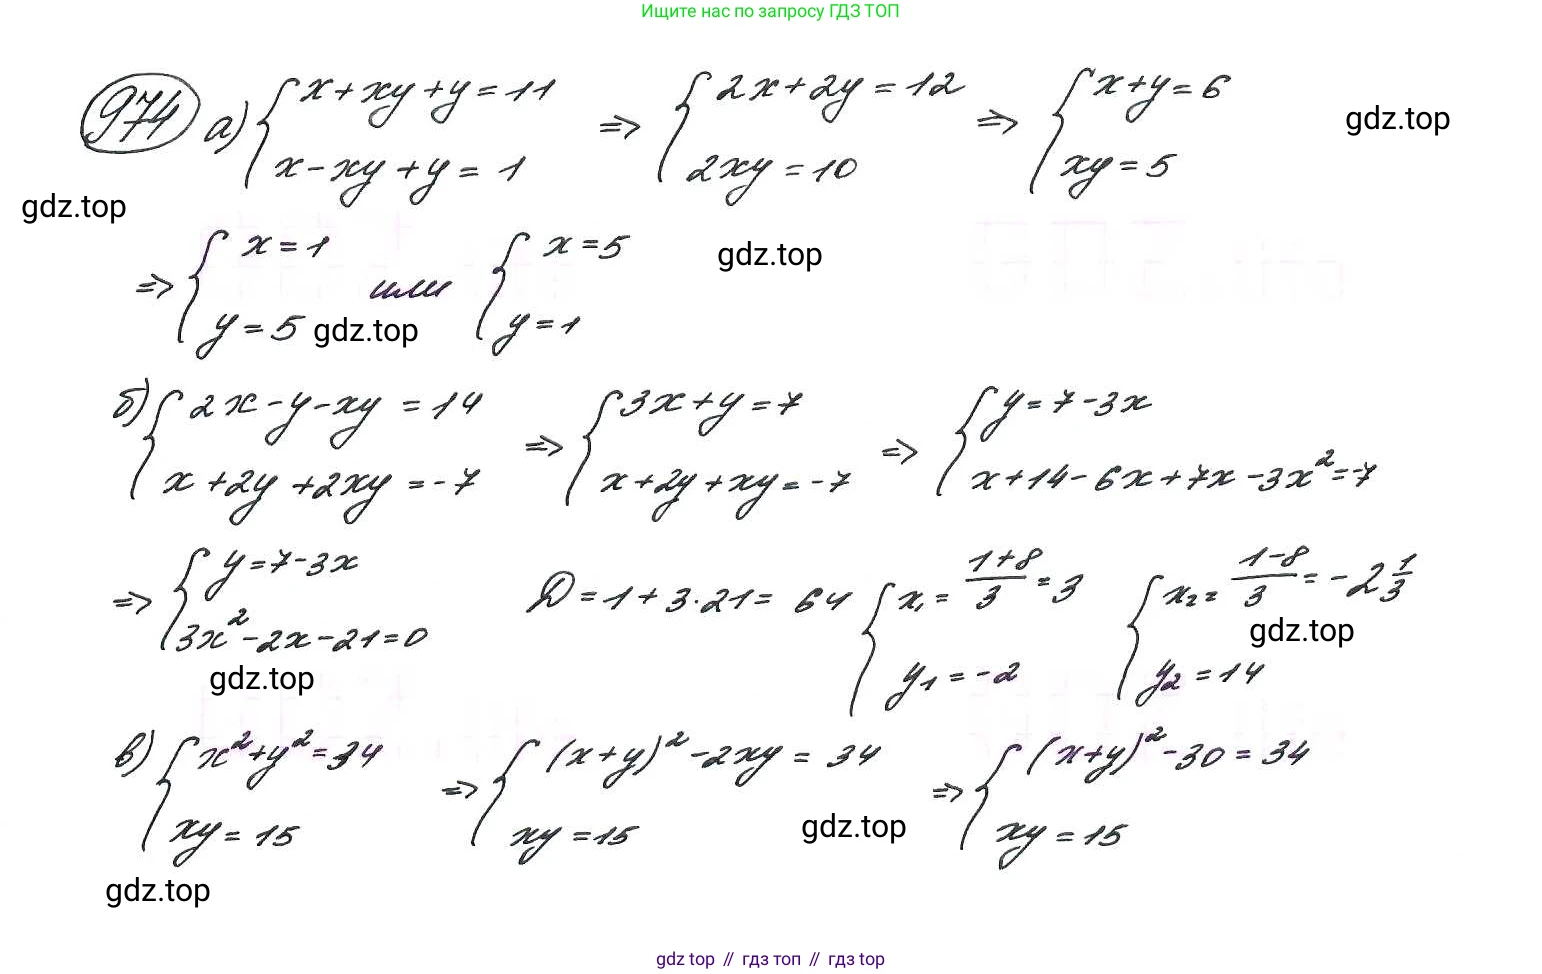 Ищите нас по запросу ГДЗ ТОП
974 а) { x + xy + y = 11 ; x - xy + y = 1 => { 2x + 2y = 12 ; 2xy = 10 => { x + y = 6 ; xy = 5
gdz.top
gdz.top
=> { x = 1 ; y = 5 или { x = 5 ; y = 1
gdz.top
gdz.top
б) { 2x - y - xy = 14 ; x + 2y + 2xy = -7 => { 3x + y = 7 ; x + 2y + xy = -7 => { y = 7 - 3x ; x + 14 - 6x + 7x - 3x² = -7
=> { y = 7 - 3x ; 3x² - 2x - 21 = 0 D = 1 + 3·21 = 64 { x₁ = (1+8)/3 = 3 ; y₁ = -2 { x₂ = (1-8)/3 = -2 1/3 ; y₂ = 14
gdz.top
gdz.top
в) { x² + y² = 34 ; xy = 15 => { (x+y)² - 2xy = 34 ; xy = 15 => { (x+y)² - 30 = 34 ; xy = 15
gdz.top
gdz.top
gdz top // гдз топ // гдз top